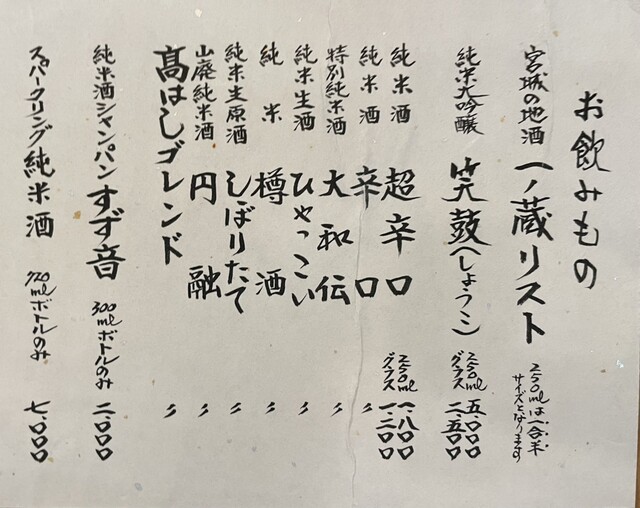 お飲みもの
宮城の地酒 一ノ蔵リスト 250mlは一合半サイズとなります
純米大吟醸 笑鼓(しょうこ) 250ml 五.000
グラス 二.五00
純米酒 超辛口 250ml 一.八00
グラス 一.二00
純米酒 辛口 〃
特別純米酒 大和伝 〃
純米生酒 ひゃっこい 〃
純米 樽酒 〃
純米生原酒 しぼりたて 〃
山廃純米酒 円融 〃
髙はしブレンド 〃
純米酒シャンパン すず音 300mlボトルのみ 二.000
スパークリング純米酒 720mlボトルのみ 七.000